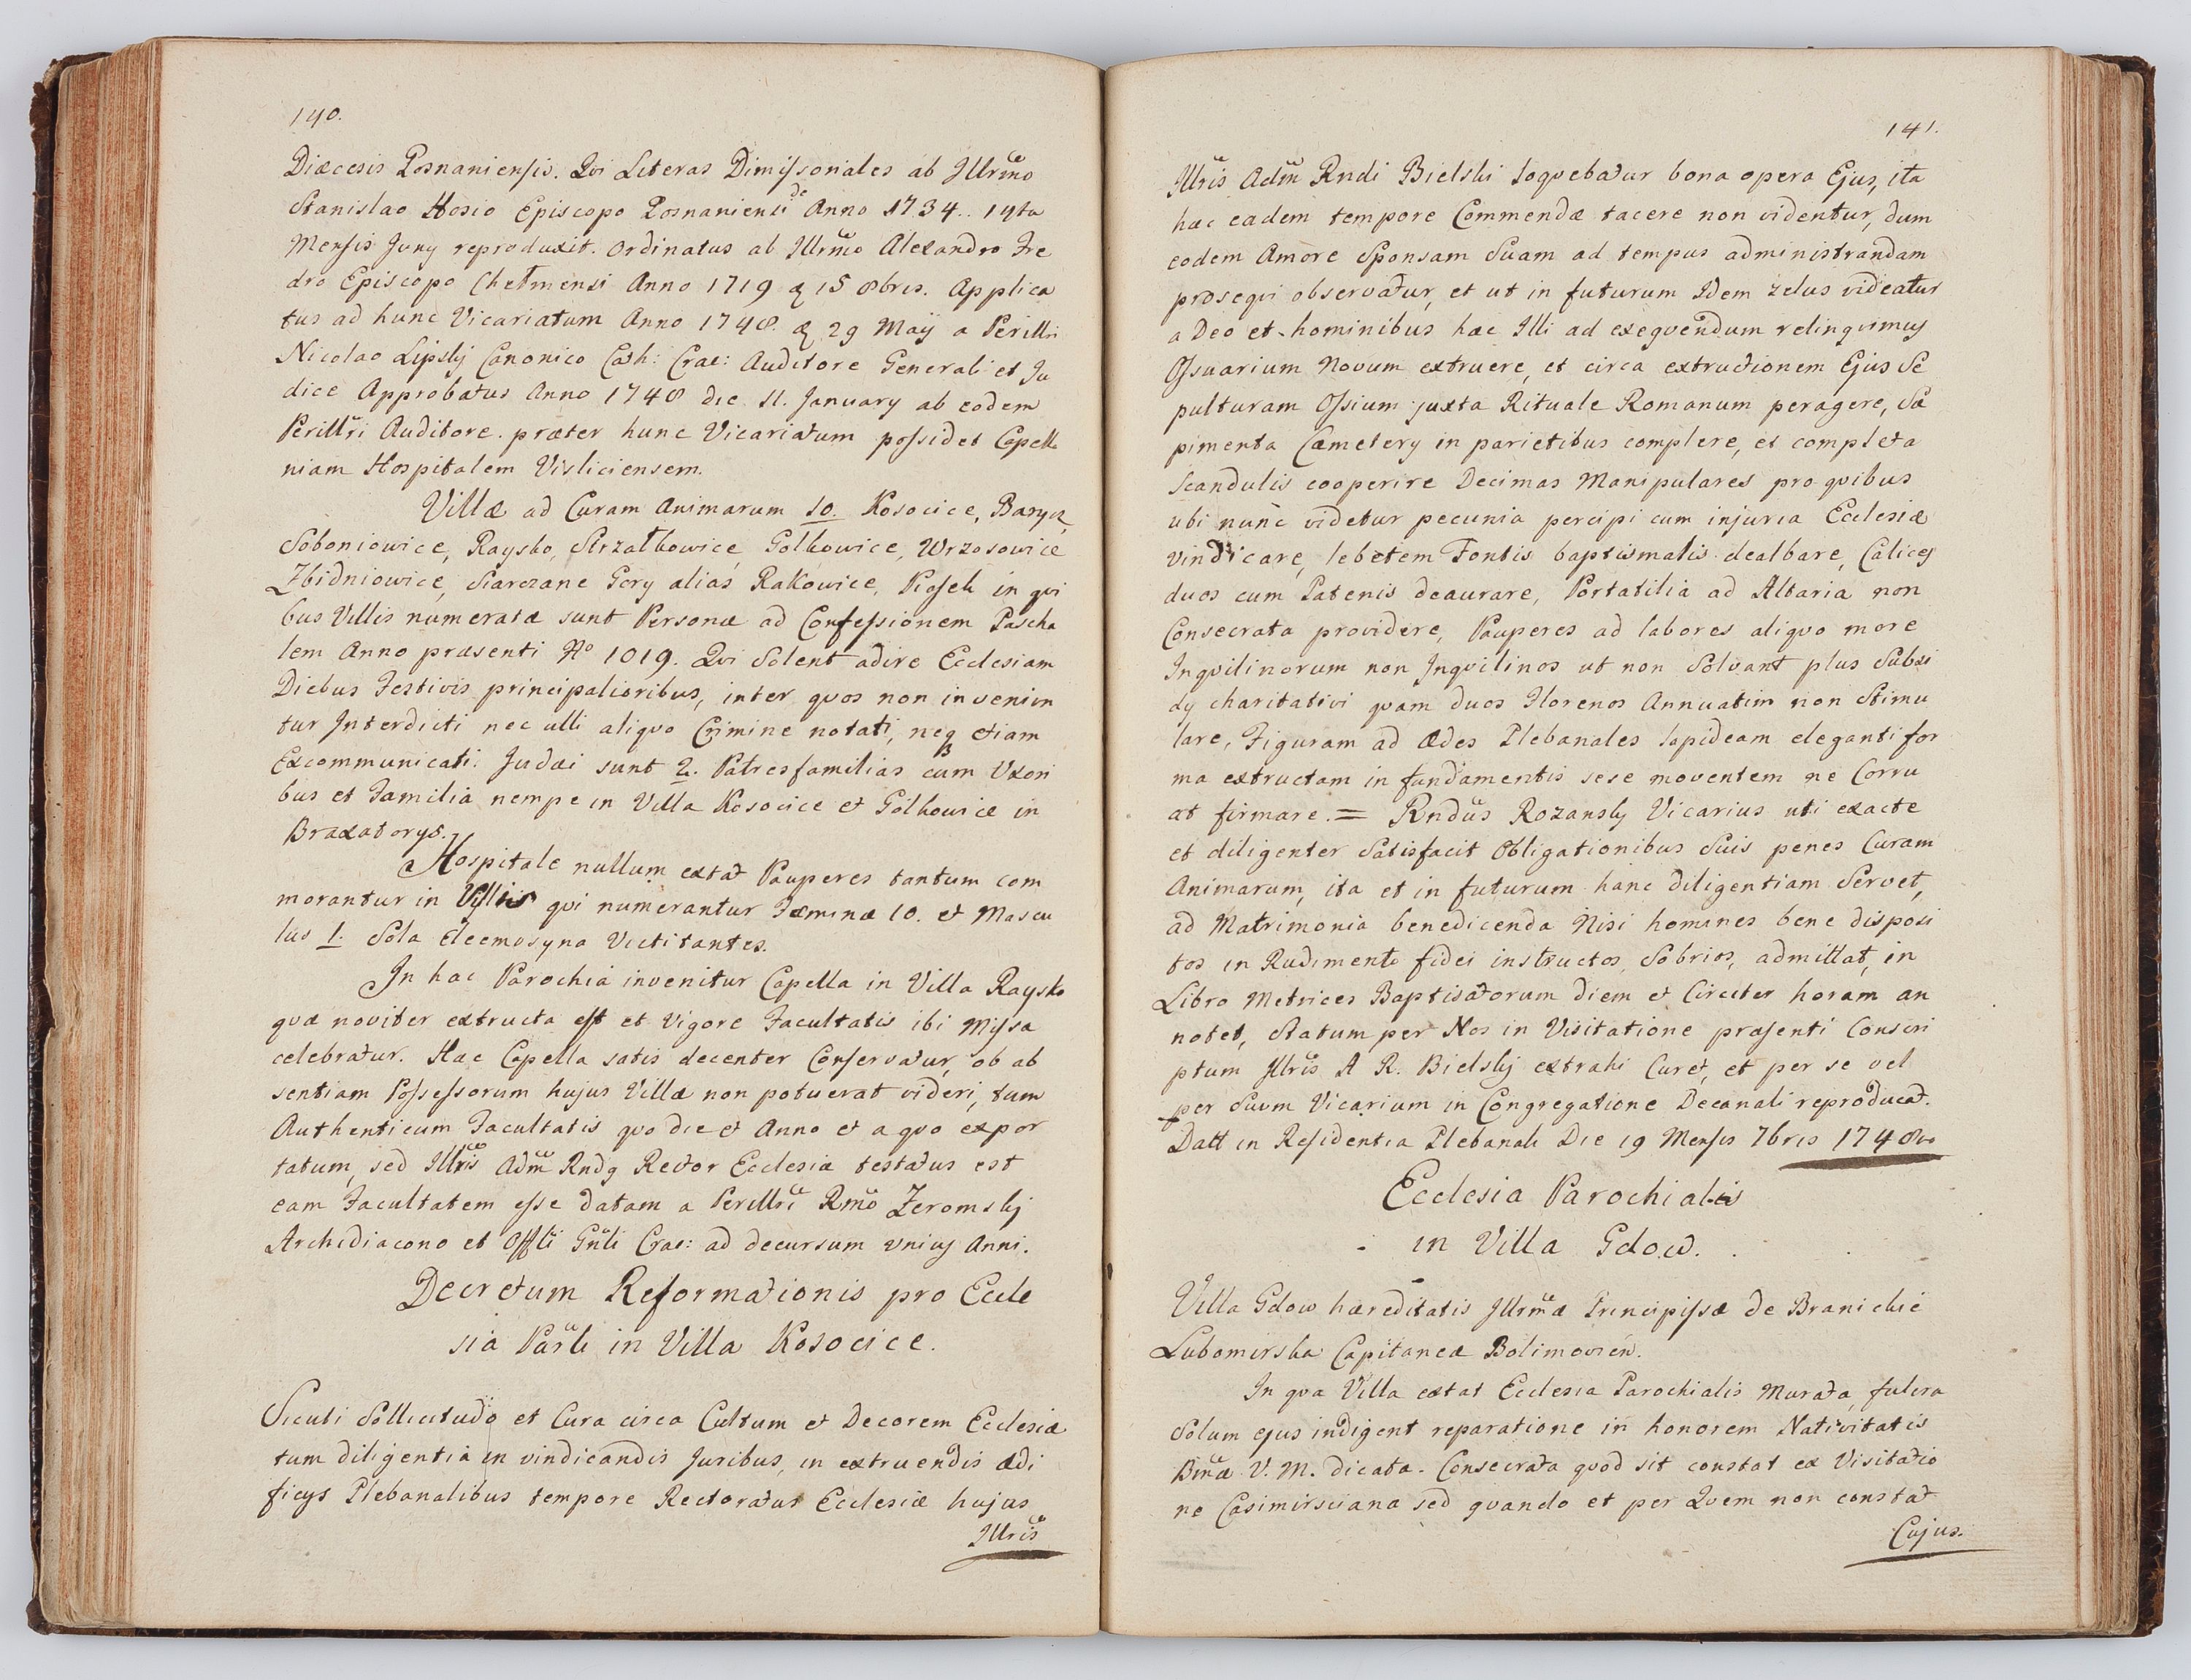 140.
Diæcesis Posnaniensis. Qvi Literas Dimissoriales ab Illrmo
Stanislao Hosio Episcopo Posnaniensi de Anno 1734.. 19ta
Mensis Juny reproduxit. Ordinatus ab Illrmo Alexandro Fre
dro Episcopo Chełmensi Anno 1719 15 8bris. Applica
tus ad hunc Vicariatum Anno 1748. 29 Maÿ a Perillri
Nicolao Lipsky Canonico Cath: Crac: Auditore Generali et Ju
dice Approbatus Anno 1748 die 11. January ab eodem
Perillri Auditore. præter hunc Vicariatum possidet Capella
niam Hospitalem Visliciensem.
Villæ ad Curam Animarum 10. Kosocice, Barycz,
Soboniowice, Raysko, Strzałkowice, Golkowice, Wrzosowice
Zbidniowice, Siarczane Gory alias Rakowice, Kossek in qvi
bus Villis numeratæ sunt Personæ ad Confessionem Pascha
lem Anno præsenti No 1019. Qvi Solent adire Ecclesiam
Diebus Festivis principalioribus, inter qvos non inveniun
tur Interdicti nec ulli aliqvo Crimine notati, neq etiam
Excommunicati. Judæi sunt 2. Patresfamilias cum Uxori
bus et Familia nempe in Villa Kosocice et Golkowice in
Braxatorys.
Hospitale nullum extat Pauperes tantum com
morantur in Villis qvi numerantur Fæminæ 10. et Mascu
lus 1. Sola eleemosyna Victitantes.
In hac Parochia invenitur Capella in Villa Raysko
qvæ noviter extructa est et Vigore Facultatis ibi Missa
celebratur. Hæc Capella satis decenter Conservatur, ob ab
sentiam Possessorum hujus Villæ non potuerat videri, tum
Authenticum Facultatis qvo die et Anno et a qvo expor
tatum, sed Illris Adm Rndg Rector Ecclesiæ testatus est
eam Facultatem esse datam a Perillri Rmo Zeromsky
Archidiacono et Offli Gnli Crac: ad decursum unius Anni.
Decretum Reformationis pro Eccle
sia Parli in Villa Kosocice.
Sicuti Sollicitudo et Cura circa Cultum et Decorem Ecclesiæ
tum diligentia in vindicandis Juribus, in extruendis ædi
ficys Plebanalibus tempore Rectoratus Ecclesiæ hujus
Illris
141.
Illris Adm Rndi Bielski loqvebatur bona opera Ejus, ita
hæc eadem tempore Commendæ tacere non videntur, dum
eodem Amore Sponsam Suam ad tempus administrandam
proseqvi observatur, et ut in futurum Idem zelus videatur
a Deo et hominibus hæc Illi ad exeqvendum relinqvimus
Ossuarium Novum extruere, et circa extructionem Ejus Se
pulturam Ossium juxta Rituale Romanum peragere, Sæ
pimenta Cæmetery in parietibus complere, et completa
Scandulis cooperire Decimas Manipulares pro qvibus
ubi nunc videtur pecunia percipi cum injuria Ecclesiæ
vindicare, lebetem Fontis baptismalis dealbare, Calices
duos cum Patenis deaurare, Portatilia ad Altaria non
Consecrata providere, Pauperes ad labores aliqvo more
Inqvilinorum non Inqvilinos ut non Solvant plus Subsi
dy charitativi qvam duos Florenos Annuatim non Stimu
lare, Figuram ad Ædes Plebanales lapideam eleganti for
ma extructam in fundamentis sese moventem ne Corru
at firmare. = Rndus Rozansky Vicarius uti exacte
et diligenter Satisfacit Obligationibus Suis penes Curam
Animarum, ita et in futurum hanc diligentiam Servet,
ad Matrimonia benedicenda Nisi homines bene disposi
tos in Rudimentis fidei instructos, Sobrios, admittat, in
Libro Metrices Baptisatorum diem et Circiter horam an
notet, Statum per Nos in Visitatione præsenti Conscri
ptum Illris A R. Bielsky extrahi Curet, et per se vel
per Suum Vicarium in Congregatione Decanali reproducat.
Datt in Residentia Plebanali Die 19 Mensis 7bris 1748vo
Ecclesia Parochialis
in Villa Gdow.
Villa Gdow hæreditatis Illrmæ Principissæ de Branickie
Lubomirska Capitaneæ Bolimovien.
In qva Villa extat Ecclesia Parochialis Murata, fulcra
Solum ejus indigent reparatione in honorem Nativitatis
Bmæ V. M. dicata. Consecrata qvod sit constat ex Visitatio
ne Casimirsciana sed qvando et per Qvem non constat
Cujus.